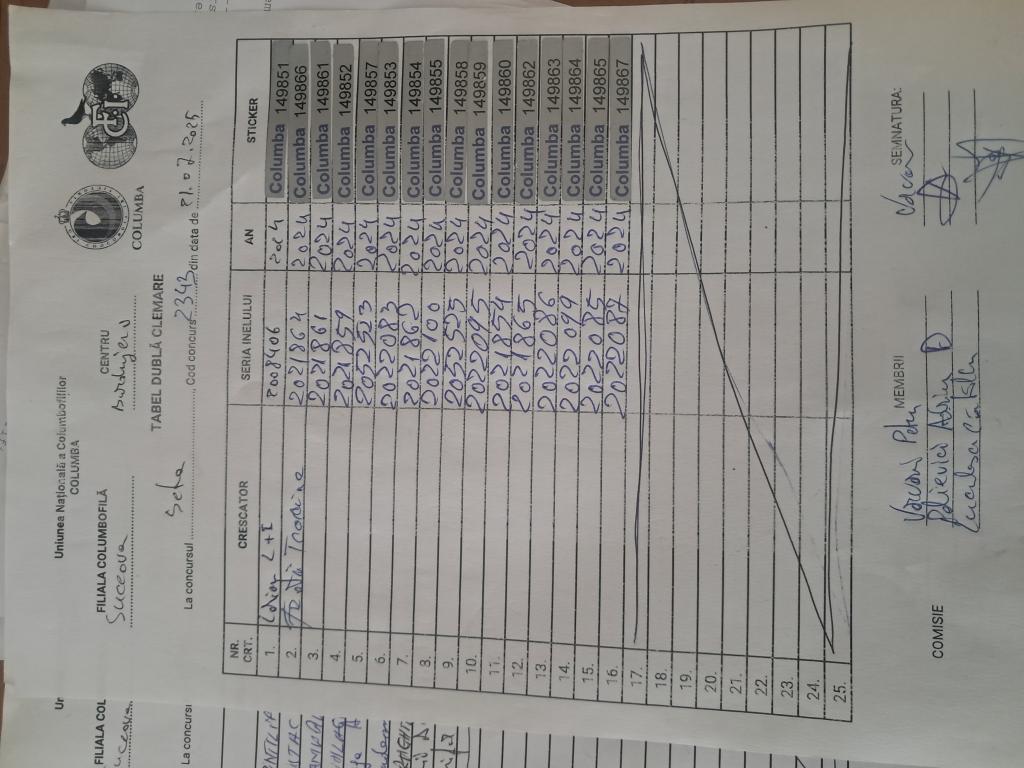 Uniunea Națională a Columbofililor
COLUMBA
COLUMBA
FILIALA COLUMBOFILĂ
CENTRU
Suceava
Burdujeni
TABEL DUBLĂ CLEMARE
La concursul Seha Cod concurs 2342 din data de 21.07.2025
NR. CRT. CRESCATOR SERIA INELULUI AN STICKER
1. L+I 2008406 2024 Columba 149851
2. 2021864 2024 Columba 149866
3. 2021861 2024 Columba 149861
4. 2021859 2024 Columba 149852
5. 2052523 2024 Columba 149857
6. 2022083 2024 Columba 149853
7. 2021862 2024 Columba 149854
8. 2022100 2024 Columba 149855
9. 2052525 2024 Columba 149858
10. 2022095 2024 Columba 149859
11. 2021854 2024 Columba 149860
12. 2021865 2024 Columba 149862
13. 2022086 2024 Columba 149863
14. 2022099 2024 Columba 149864
15. 2022085 2024 Columba 149865
16. 2022087 2024 Columba 149867
17.
18.
19.
20.
21.
22.
23.
24.
25.
COMISIE
MEMBRII
SEMNATURA:
Petru
Adrian
FILIALA COL
La concursul